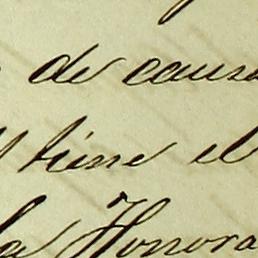 de causa
tiene el
la Honora